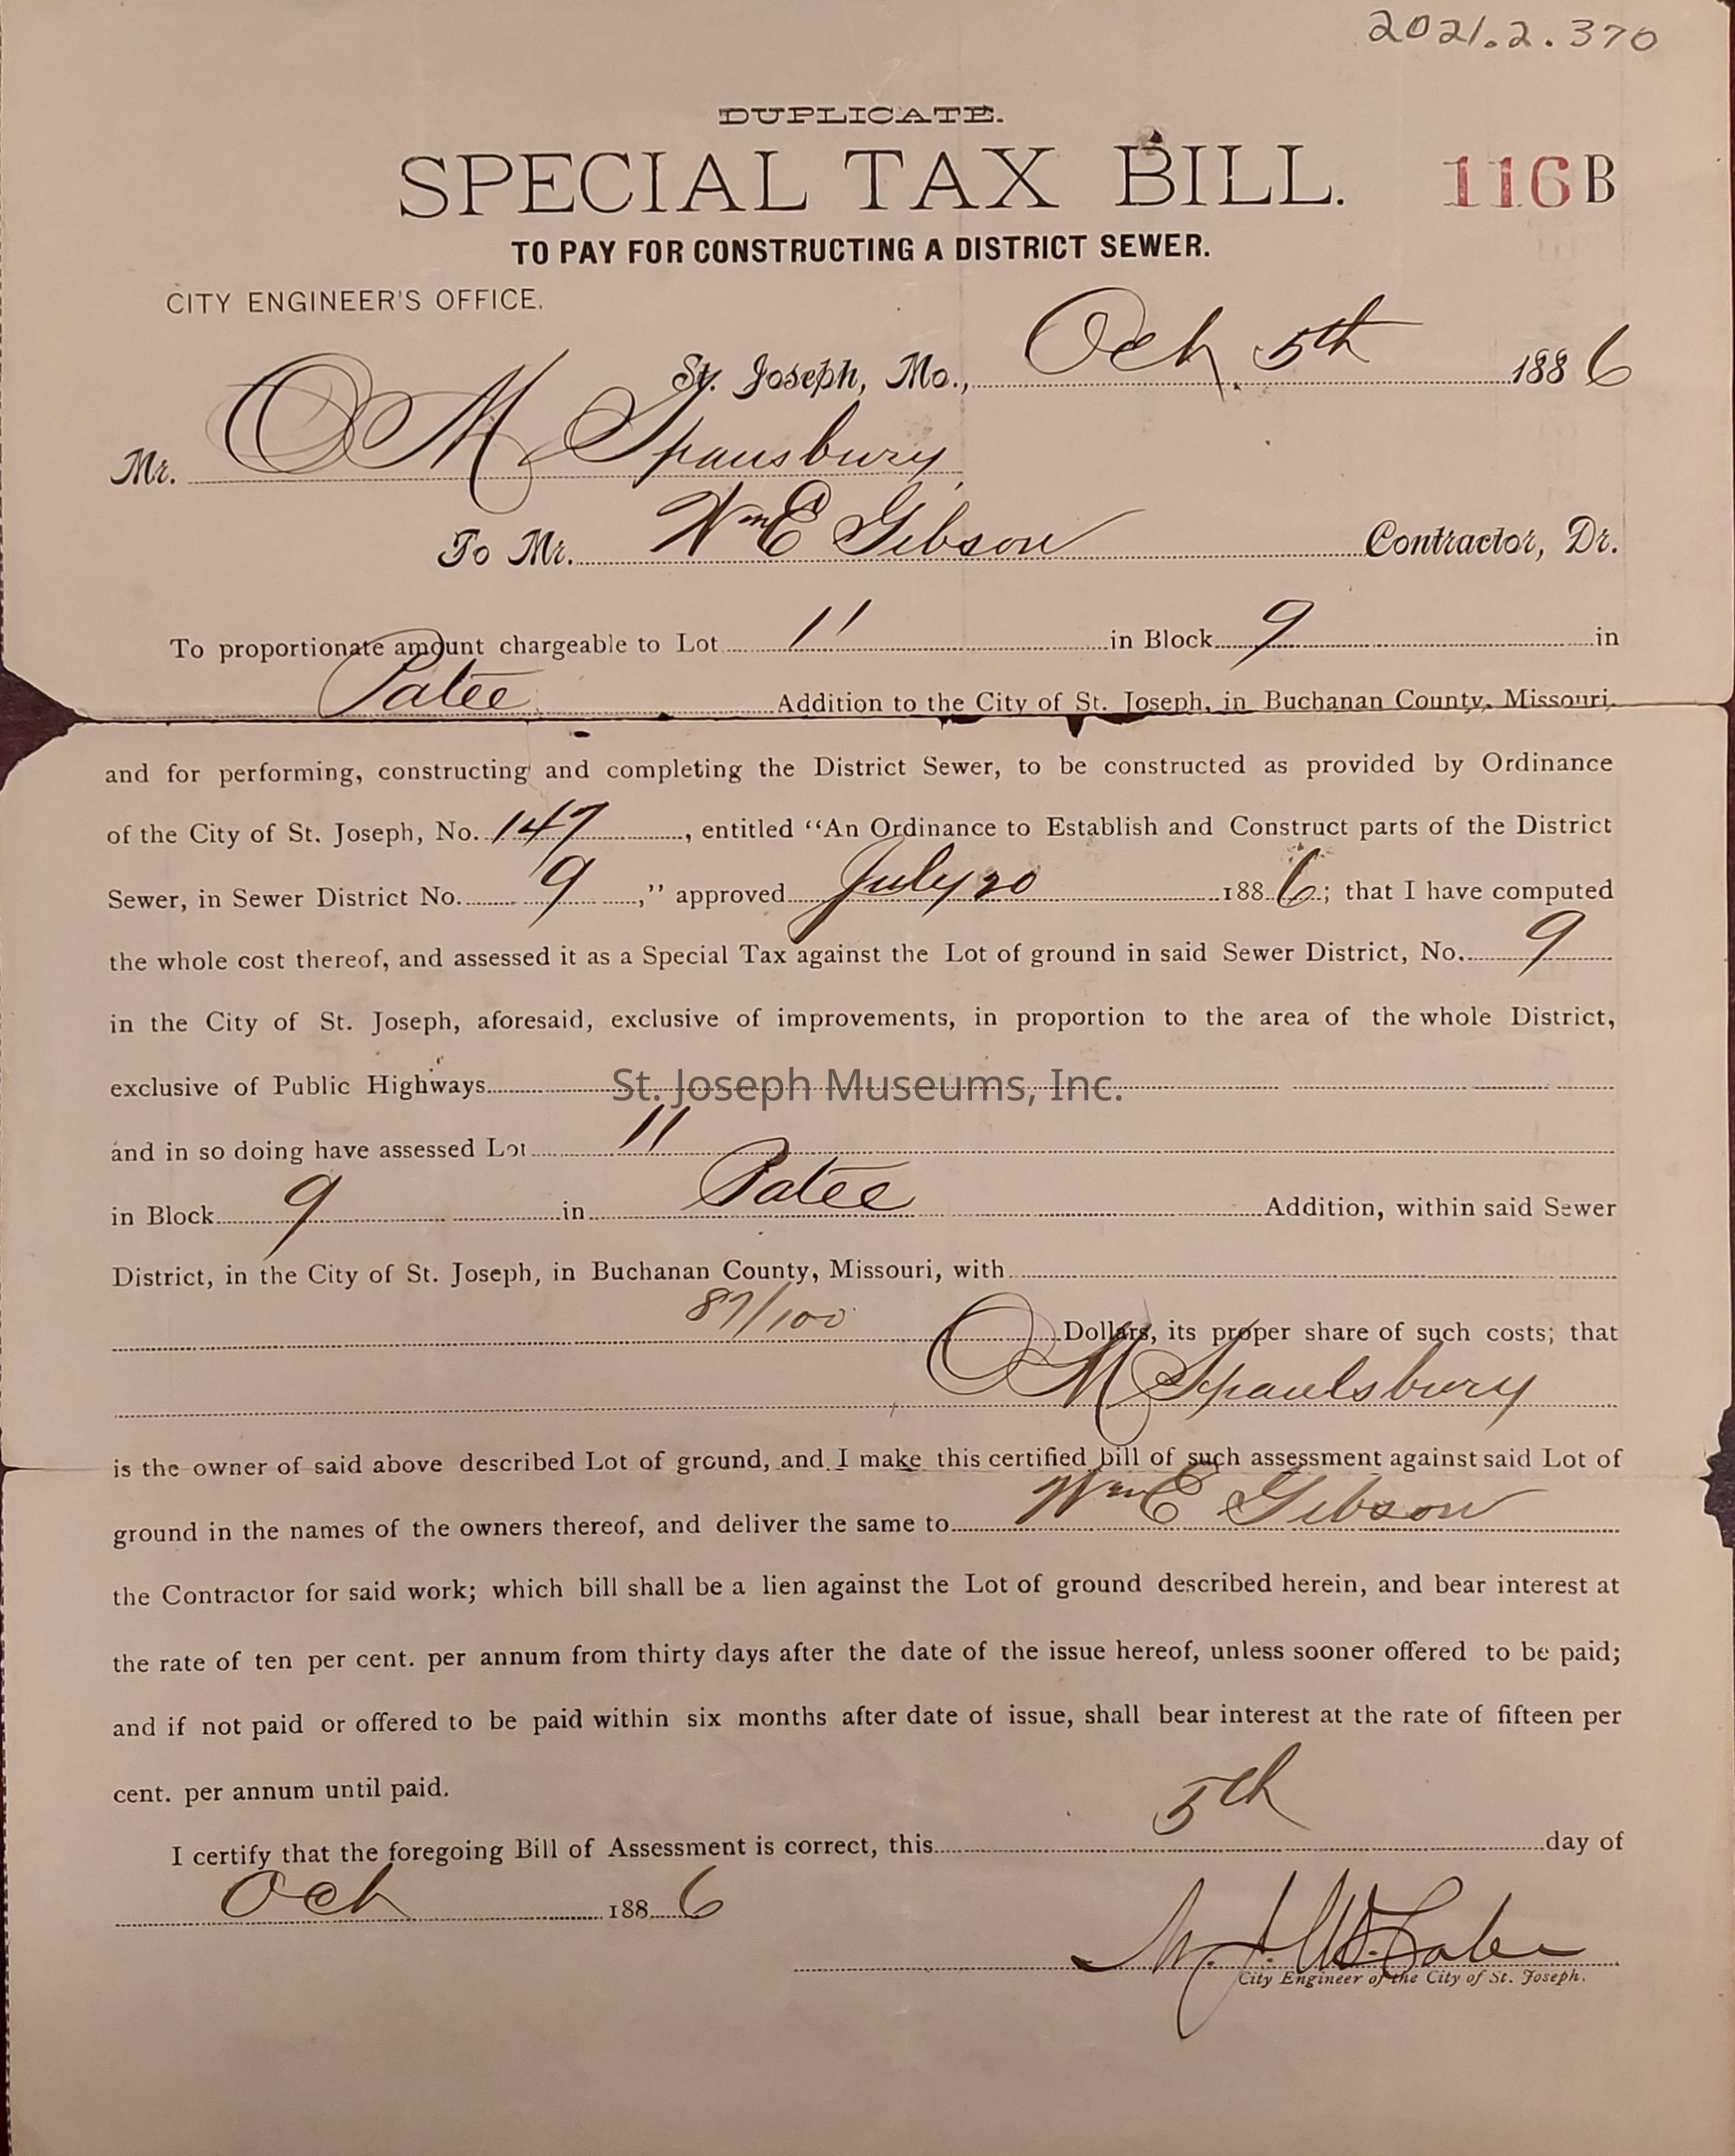 2021.2.370
DUPLICATE.
SPECIAL TAX BILL. 116 B
TO PAY FOR CONSTRUCTING A DISTRICT SEWER.
CITY ENGINEER'S OFFICE.
St. Joseph, Mo., Oct. 5th 1886
Mr. O M Spausbury
To Mr. Wm E Gibson Contractor, Dr.
To proportionate amount chargeable to Lot 11 in Block 9 in
Patee Addition to the City of St. Joseph, in Buchanan County, Missouri,
and for performing, constructing and completing the District Sewer, to be constructed as provided by Ordinance
of the City of St. Joseph, No. 147, entitled “An Ordinance to Establish and Construct parts of the District
Sewer, in Sewer District No. 9,” approved July 20 1886; that I have computed
the whole cost thereof, and assessed it as a Special Tax against the Lot of ground in said Sewer District, No. 9
in the City of St. Joseph, aforesaid, exclusive of improvements, in proportion to the area of the whole District,
exclusive of Public Highways
St. Joseph Museums, Inc.
and in so doing have assessed Lot 11
in Block 9 in Patee Addition, within said Sewer
District, in the City of St. Joseph, in Buchanan County, Missouri, with
87/100 Dollars, its proper share of such costs; that
O M Spaulsbury
is the owner of said above described Lot of ground, and I make this certified bill of such assessment against said Lot of
ground in the names of the owners thereof, and deliver the same to Wm E Gibson
the Contractor for said work; which bill shall be a lien against the Lot of ground described herein, and bear interest at
the rate of ten per cent. per annum from thirty days after the date of the issue hereof, unless sooner offered to be paid;
and if not paid or offered to be paid within six months after date of issue, shall bear interest at the rate of fifteen per
cent. per annum until paid.
I certify that the foregoing Bill of Assessment is correct, this 5th day of
Oct 1886
City Engineer of the City of St. Joseph.